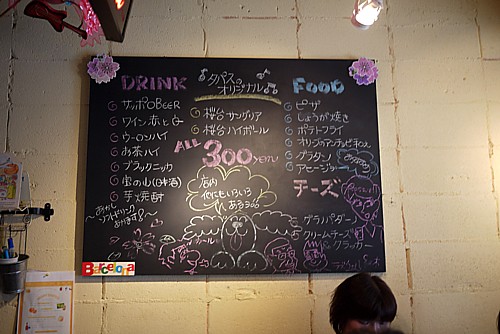 DRINK
サッポロBEER
ワイン 赤と白
ウーロンハイ
お茶ハイ
ブラックニッカ
宝の山(日本酒)
芋焼酎
タパスの
オリジナル
桜台サングリア
桜台ハイボール
ALL 300 YEN
店内
他にもいろいろ
あるヨ
FOOD
ピザ
しょうが焼き
ポテトフライ
グラタン
アヒージョ
チーズ
グラナパダーノ
クリームチーズ
&クラッカー
Barcelona